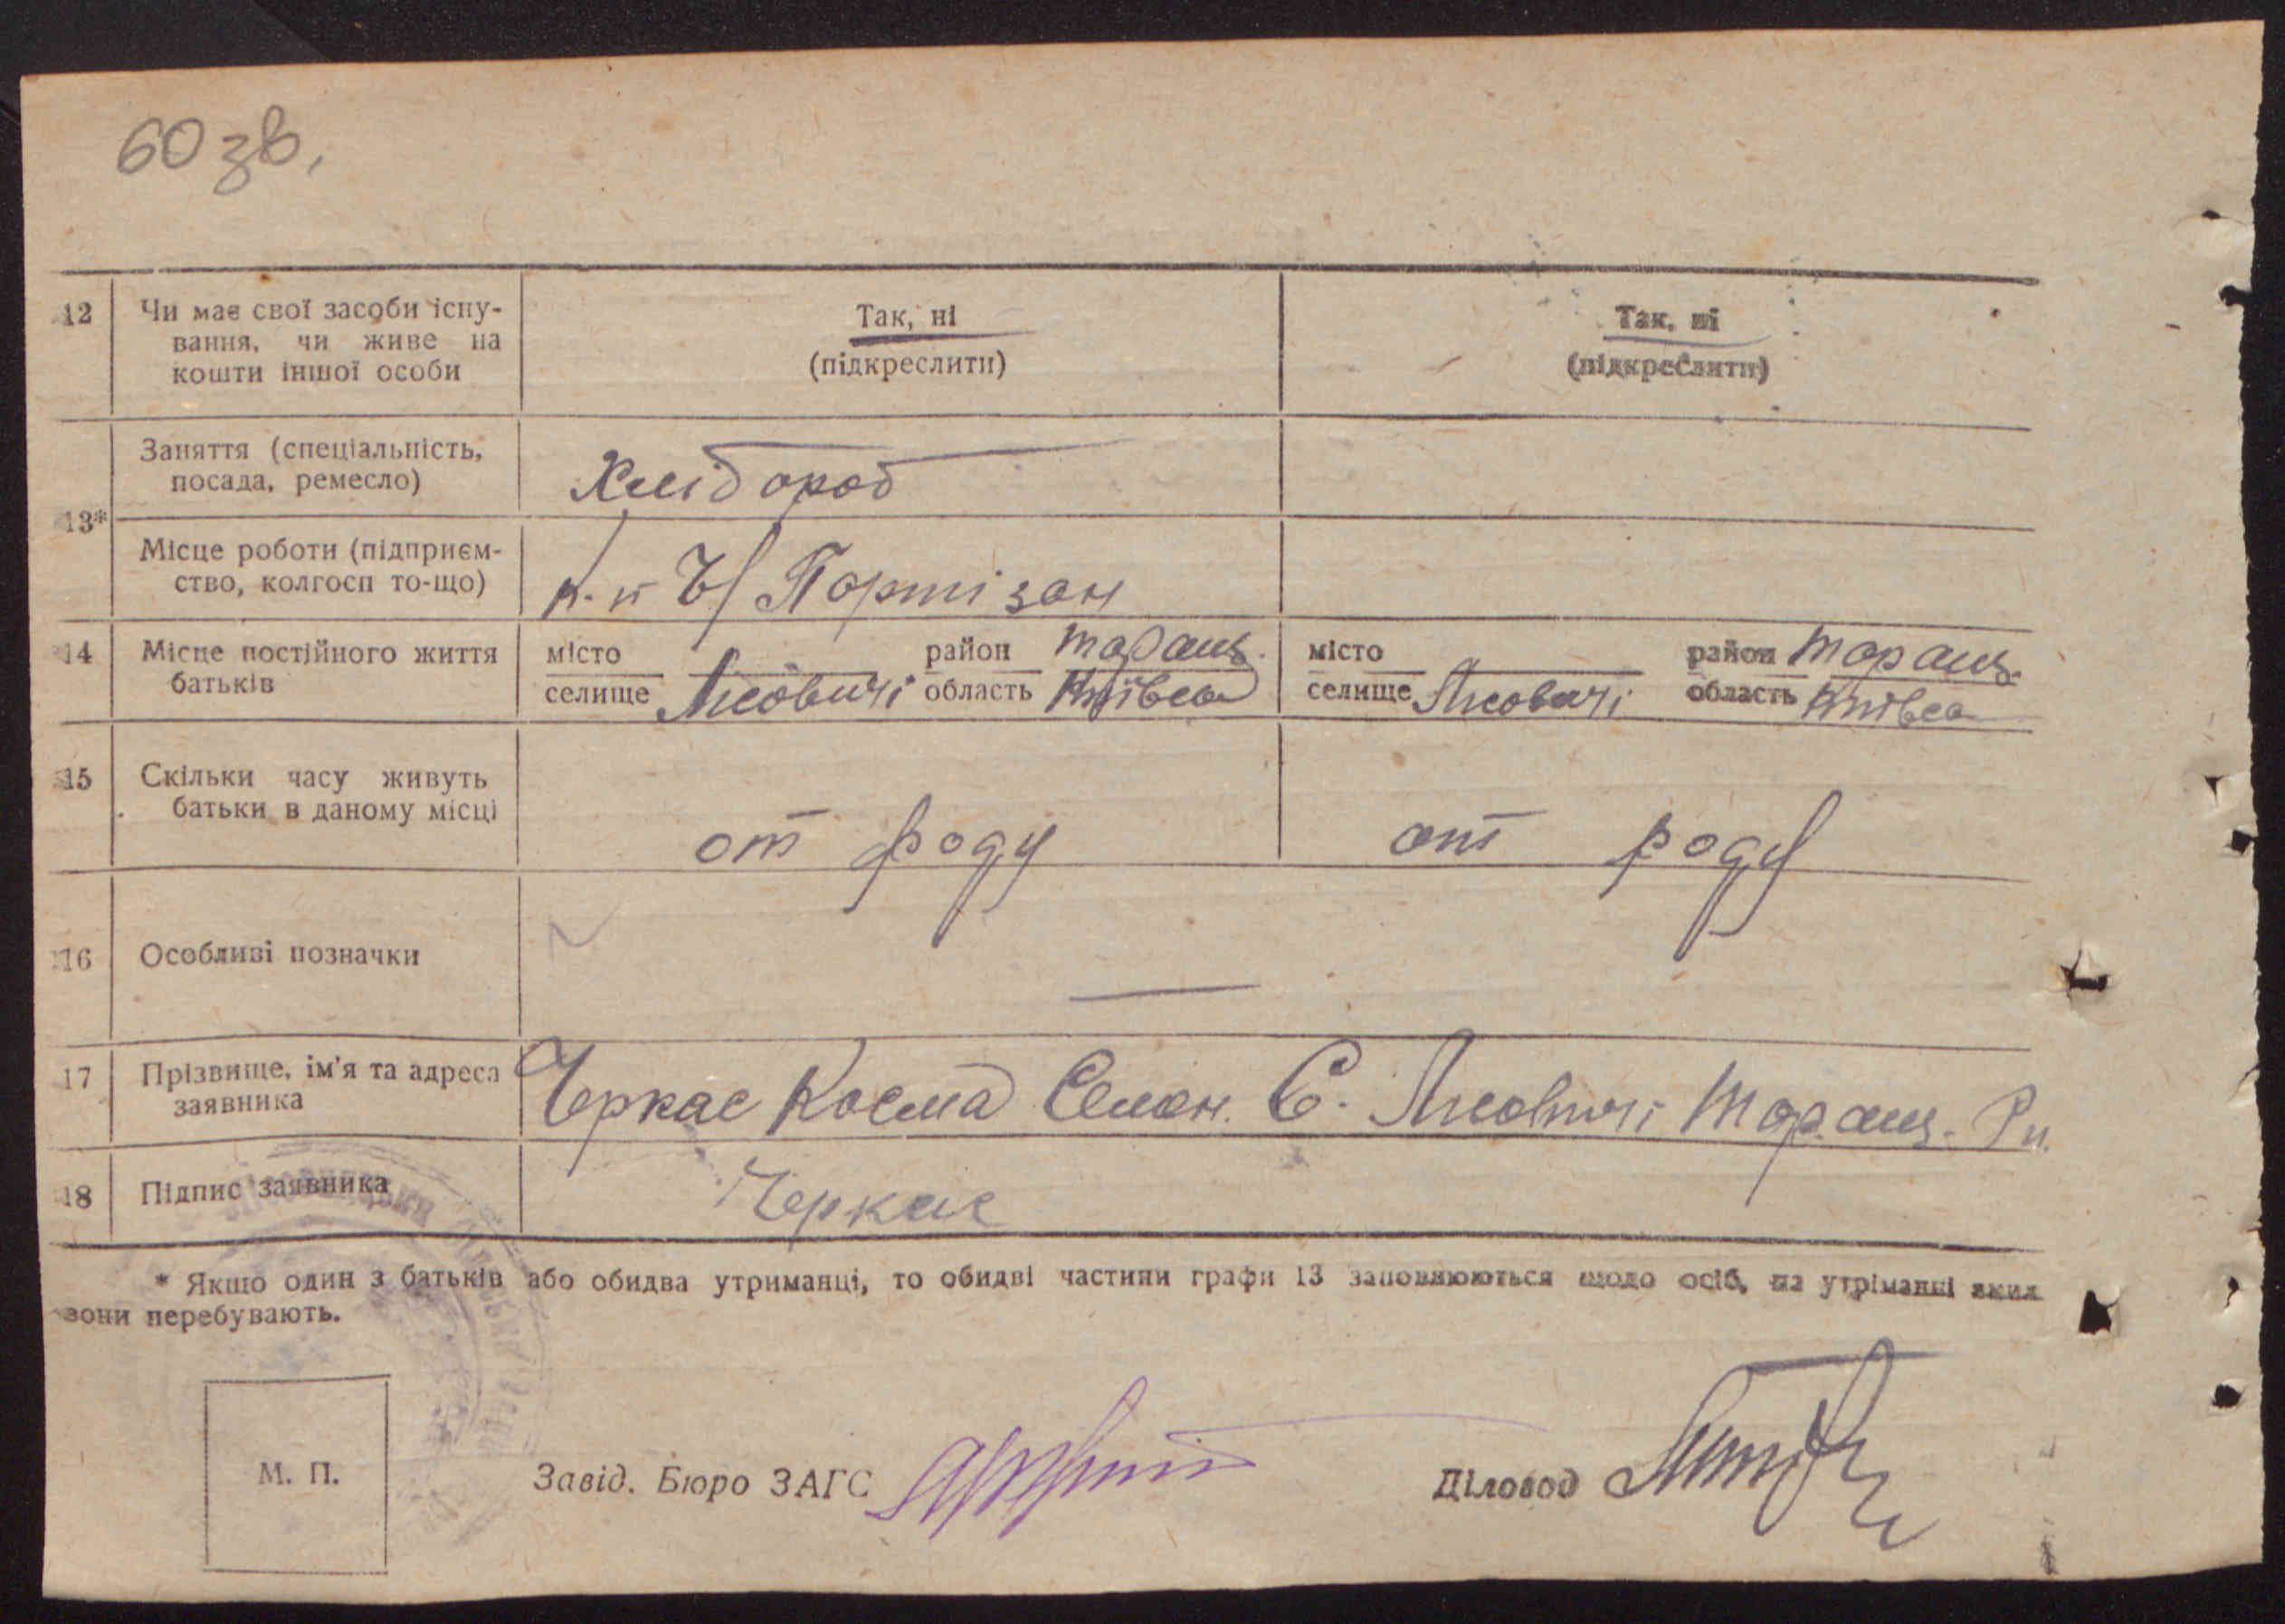 60 зв.
12 Чи має свої засоби існу-
вання, чи живе на
кошти іншої особи
Так, ні
(підкреслити)
Так, ні
(підкреслити)
13*
Заняття (спеціальність,
посада, ремесло)
Хлібороб
Місце роботи (підприєм-
ство, колгосп то-що)
Ч/Портізан
14 Місце постійного життя
батьків
місто
селище Лісовичі
район Таращ.
область Київса
місто
селище Лісовичі
район Таращ.
область Київса
15 Скільки часу живуть
батьки в даному місці
от роду
от роду
16 Особливі позначки
—
17 Прізвище, ім'я та адреса
заявника
Черкас Косма Семен. С. Лісовичі Таращ. Рн.
18 Підпис заявника
Черкас
* Якщо один з батьків або обидва утриманці, то обидві частини графи 13 заповнюються щодо осіб, на утріманні яких
вони перебувають.
М. П.
Завід. Бюро ЗАГС
Діловод